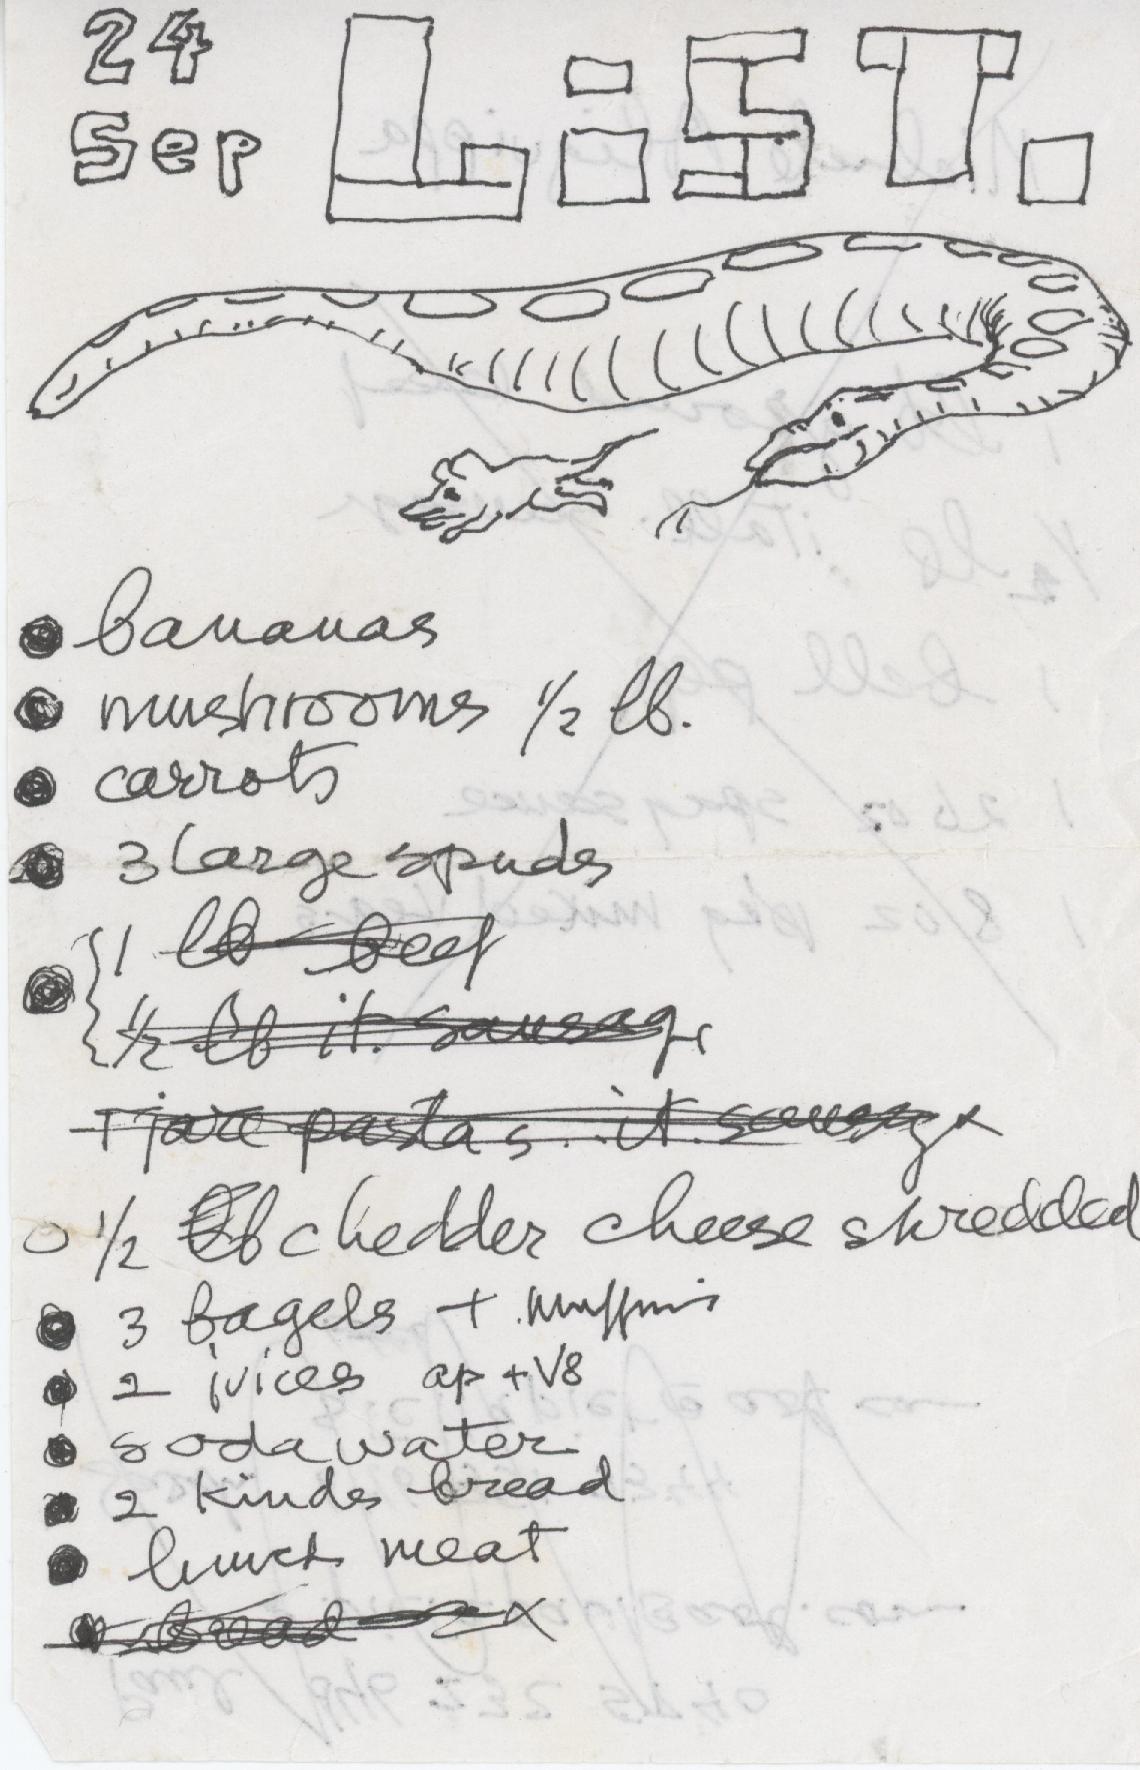 24
Sep
LiST.
bananas
mushrooms 1/2 lb.
carrots
3 large spuds
1 lb beef
1/2 lb it. sausage
1 jare pasta s. it. sausage x
1/2 lb chedder cheese shredded
3 bagels + muffins
2 juices ap + V8
soda water
2 kinds bread
lunch meat
bread x